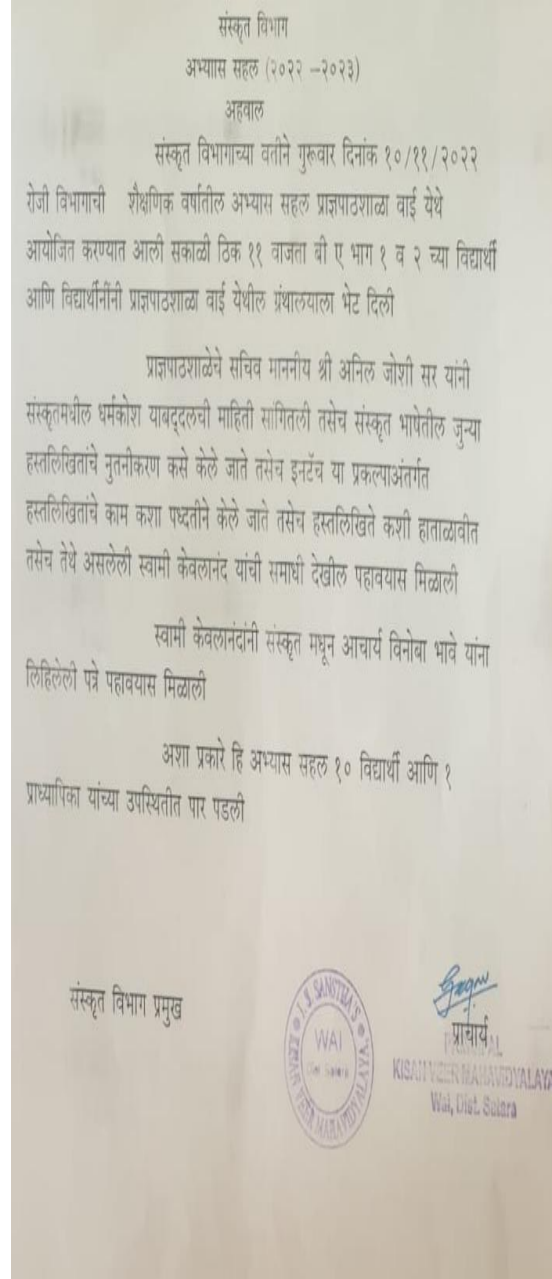 संस्कृत विभाग
अभ्याास सहल (२०२२ -२०२३)
अहवाल
संस्कृत विभागाच्या वतीने गुरूवार दिनांक १०/११/२०२२
रोजी विभागाची शैक्षणिक वर्षातील अभ्यास सहल प्राज्ञपाठशाळा वाई येथे
आयोजित करण्यात आली सकाळी ठिक ११ वाजता बी ए भाग १ व २ च्या विद्यार्थी
आणि विद्यार्थीनींनी प्राज्ञपाठशाळा वाई येथील ग्रंथालयाला भेट दिली
प्राज्ञपाठशाळेचे सचिव माननीय श्री अनिल जोशी सर यांनी
संस्कृतमधील धर्मकोश याबद्दलची माहिती सागितली तसेच संस्कृत भाषेतील जुन्या
हस्तलिखितांचे नुतनीकरण कसे केले जाते तसेच इनटॅच या प्रकल्पाअंतर्गत
हस्तलिखितांचे काम कशा पध्दतीने केले जाते तसेच हस्तलिखिते कशी हाताळावीत
तसेच तेथे असलेली स्वामी केवलानंद यांची समाधी देखील पहावयास मिळाली
स्वामी केवलानंदांनी संस्कृत मधून आचार्य विनोबा भावे यांना
लिहिलेली पत्रे पहावयास मिळाली
अशा प्रकारे हि अभ्यास सहल १० विद्यार्थी आणि १
प्राध्यापिका यांच्या उपस्थितीत पार पडली
संस्कृत विभाग प्रमुख
प्राचार्य
PRINCIPAL
KISAN VEER MAHAVIDYALAYA
Wai, Dist. Satara
J. S. SANSTHA'S
WAI
Dist. Satara
KISAN VEER MAHAVIDYALAYA